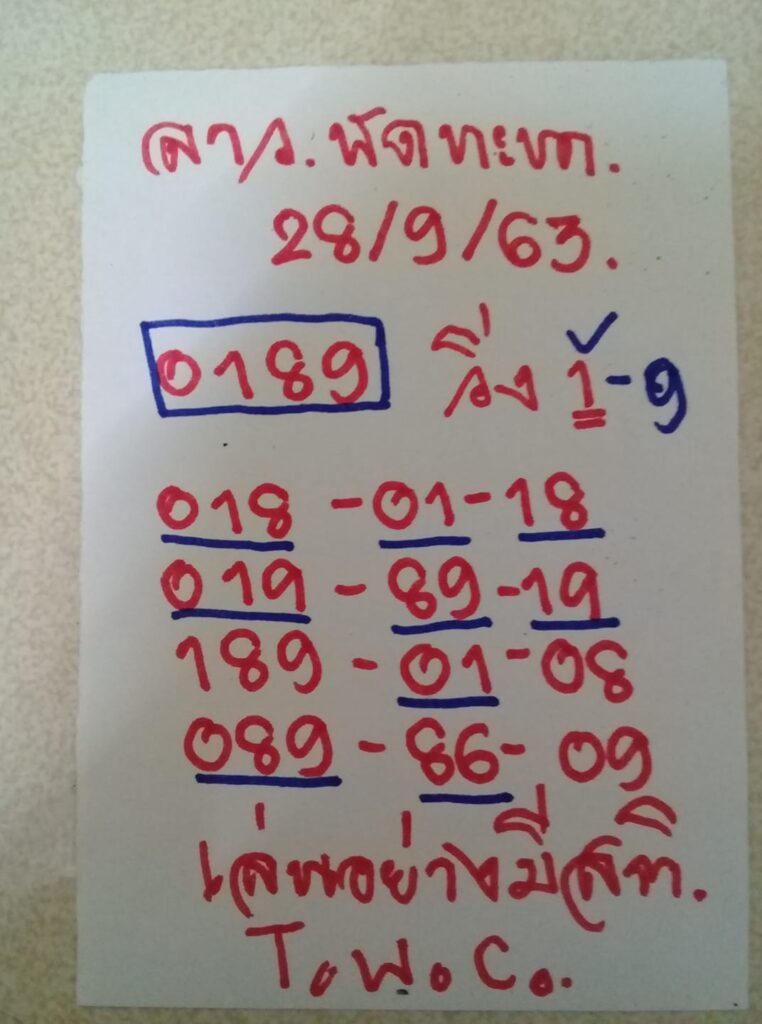 ลาว.พัดทะยา.
28/9/63.
0189 วิ่ง 1-9
018-01-18
019-89-19
189-01-08
089-86-09
เล่นอย่างมีสติ.
T.W.C.